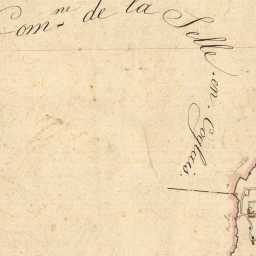 Com.ne de la Selle en Coglais.